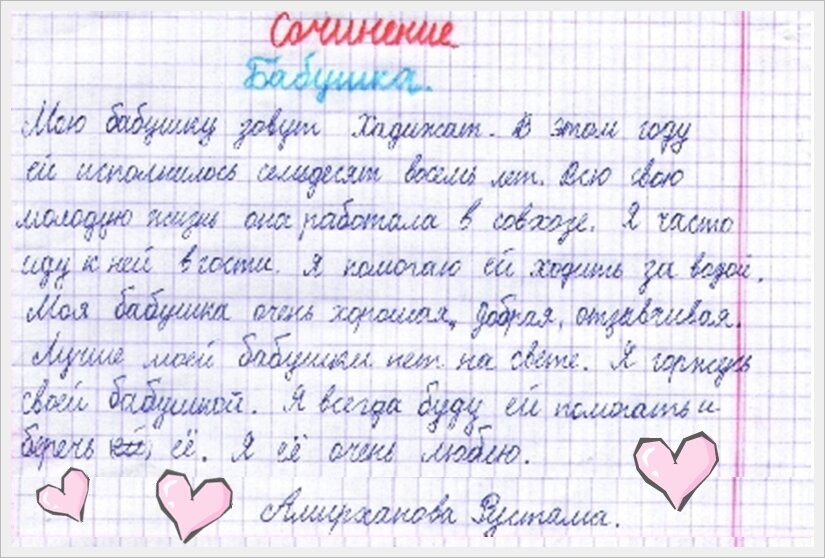 Сочинение
Бабушка.
Мою бабушку зовут Хадижат. В этом году
ей исполнилось семидесят восемь лет. Всю свою
молодую жизнь она работала в совхозе. Я часто
иду к ней в гости. Я помогаю ей ходить за водой.
Моя бабушка очень хорошая, добрая, отзавчивая.
Лучше моей бабушки нет на свете. Я горжусь
своей бабушкой. Я всегда буду ей помогать и
беречь её. Я её очень люблю.
Амирханова Рустама.